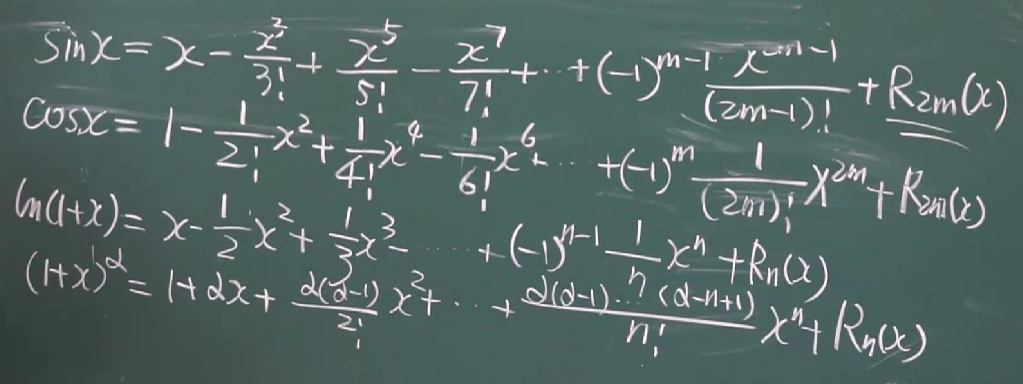 sinx = x - x³/3! + x⁵/5! - x⁷/7! + ⋯ + (-1)ᵐ⁻¹ x²ᵐ⁻¹/(2m-1)! + R₂ₘ(x)
cosx = 1 - 1/2! x² + 1/4! x⁴ - 1/6! x⁶ + ⋯ + (-1)ᵐ 1/(2m)! x²ᵐ + R₂ₘ(x)
ln(1+x) = x - 1/2 x² + 1/3 x³ - ⋯ + (-1)ⁿ⁻¹ 1/n xⁿ + Rₙ(x)
(1+x)^α = 1 + αx + α(α-1)/2! x² + ⋯ + α(α-1)⋯(α-n+1)/n! xⁿ + Rₙ(x)